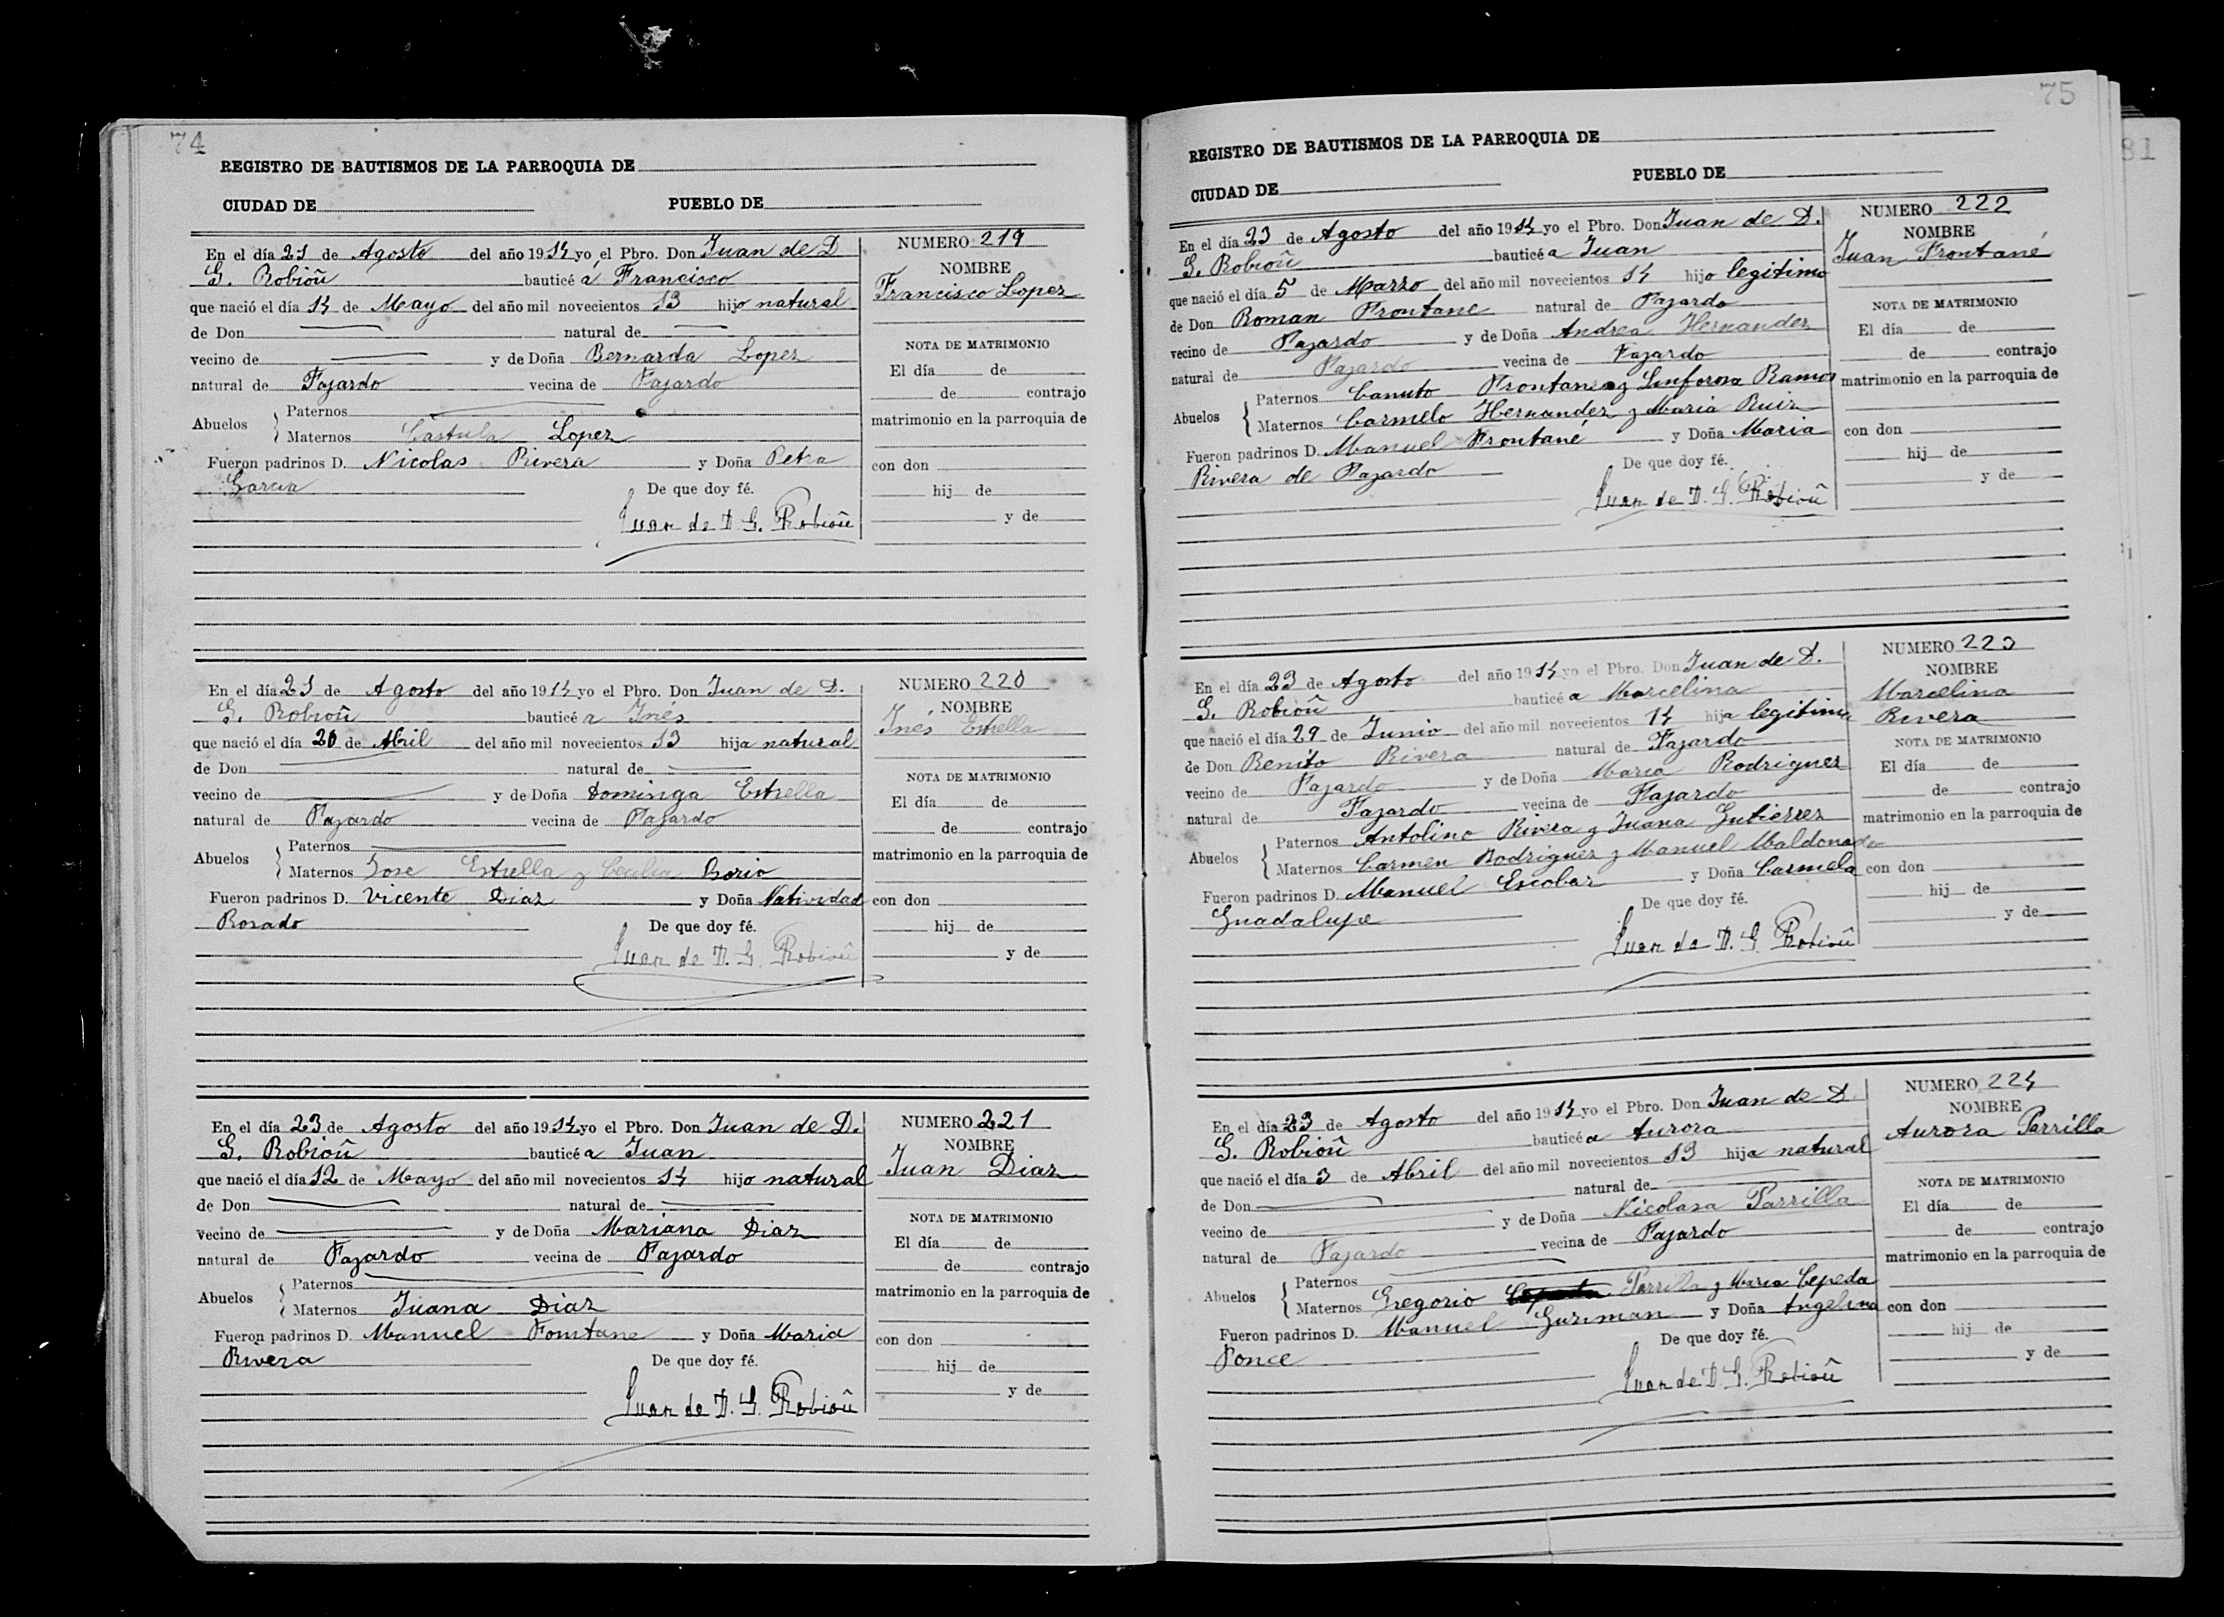 74
REGISTRO DE BAUTISMOS DE LA PARROQUIA DE
CIUDAD DE PUEBLO DE
En el día 21 de Agosto del año 1914 yo el Pbro. Don Juan de D.
G. Robioû bauticé á Francisco
que nació el día 14 de Mayo del año mil novecientos 13 hijo natural
de Don natural de
vecino de y de Doña Bernarda Lopez
natural de Fajardo vecina de Fajardo
Abuelos
Paternos
Maternos Castula Lopez
Fueron padrinos D. Nicolas Rivera y Doña Petra
Garcia De que doy fé.
Juan de D. G. Robioû
NUMERO 219
NOMBRE
Francisco Lopez
NOTA DE MATRIMONIO
El día de
de contrajo
matrimonio en la parroquia de
con don
hij de
y de
En el día 21 de Agosto del año 1914 yo el Pbro. Don Juan de D.
G. Robioû bauticé a Inés
que nació el día 20 de Abril del año mil novecientos 13 hija natural
de Don natural de
vecino de y de Doña Dominga Estrella
natural de Fajardo vecina de Fajardo
Abuelos
Paternos
Maternos Jose Estrella y Cecilia Osorio
Fueron padrinos D. Vicente Diaz y Doña Natividad
Rosado De que doy fé.
Juan de D. G. Robioû
NUMERO 220
NOMBRE
Inés Estrella
NOTA DE MATRIMONIO
El día de
de contrajo
matrimonio en la parroquia de
con don
hij de
y de
En el día 23 de Agosto del año 1914 yo el Pbro. Don Juan de D.
G. Robioû bauticé a Juan
que nació el día 12 de Mayo del año mil novecientos 14 hijo natural
de Don natural de
vecino de y de Doña Mariana Diaz
natural de Fajardo vecina de Fajardo
Abuelos
Paternos
Maternos Juana Diaz
Fueron padrinos D. Manuel Fontane y Doña Maria
Rivera De que doy fé.
Juan de D. G. Robioû
NUMERO 221
NOMBRE
Juan Diaz
NOTA DE MATRIMONIO
El día de
de contrajo
matrimonio en la parroquia de
con don
hij de
y de
75
REGISTRO DE BAUTISMOS DE LA PARROQUIA DE
CIUDAD DE PUEBLO DE
En el día 23 de Agosto del año 1914 yo el Pbro. Don Juan de D.
G. Robioû bauticé a Juan
que nació el día 5 de Marzo del año mil novecientos 14 hijo legitimo
de Don Roman Frontane natural de Fajardo
vecino de Fajardo y de Doña Andrea Hernandez
natural de Fajardo vecina de Fajardo
Abuelos
Paternos Canuto Frontane y Sinforosa Ramos
Maternos Carmelo Hernandez y Maria Ruiz
Fueron padrinos D. Manuel Frontané y Doña Maria
Rivera de Fajardo De que doy fé.
Juan de D. G. Robioû
NUMERO 222
NOMBRE
Juan Frontané
NOTA DE MATRIMONIO
El día de
de contrajo
matrimonio en la parroquia de
con don
hij de
y de
En el día 23 de Agosto del año 1914 yo el Pbro. Don Juan de D.
G. Robioû bauticé a Marcelina
que nació el día 29 de Junio del año mil novecientos 14 hija legitima
de Don Benito Rivera natural de Fajardo
vecino de Fajardo y de Doña Maria Rodriguez
natural de Fajardo vecina de Fajardo
Abuelos
Paternos Antolino Rivera y Juana Gutierrez
Maternos Carmen Rodriguez y Manuel Maldonado
Fueron padrinos D. Manuel Escobar y Doña Carmela
Guadalupe De que doy fé.
Juan de D. G. Robioû
NUMERO 223
NOMBRE
Marcelina
Rivera
NOTA DE MATRIMONIO
El día de
de contrajo
matrimonio en la parroquia de
con don
hij de
y de
En el día 23 de Agosto del año 1914 yo el Pbro. Don Juan de D.
G. Robioû bauticé a Aurora
que nació el día 3 de Abril del año mil novecientos 13 hija natural
de Don natural de
vecino de y de Doña Nicolasa Parrilla
natural de Fajardo vecina de Fajardo
Abuelos
Paternos
Maternos Gregorio Parrilla y Maria Cepeda
Fueron padrinos D. Manuel Guzman y Doña Angelina
Ponce De que doy fé.
Juan de D. G. Robioû
NUMERO 224
NOMBRE
Aurora Parrilla
NOTA DE MATRIMONIO
El día de
de contrajo
matrimonio en la parroquia de
con don
hij de
y de
81